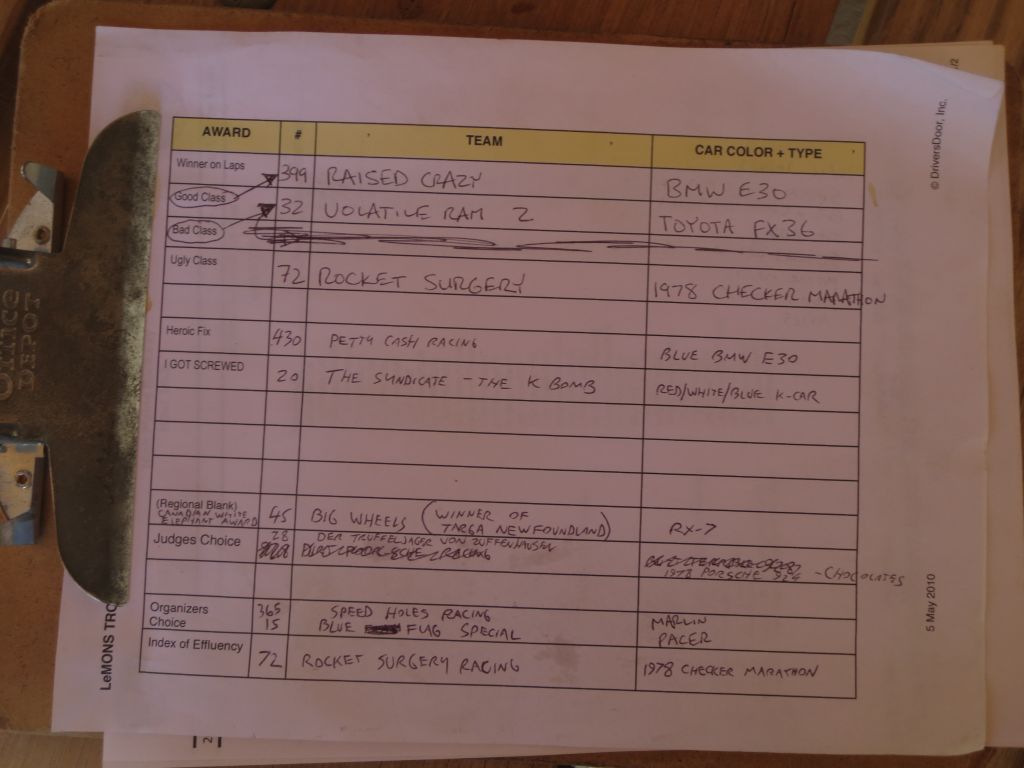 AWARD # TEAM CAR COLOR + TYPE
Winner on Laps
399 RAISED CRAZY BMW E30
Good Class
32 VOLATILE RAM 2 TOYOTA FX36
Bad Class
Ugly Class
72 ROCKET SURGERY 1978 CHECKER MARATHON
Heroic Fix 430 PETTY CASH RACING BLUE BMW E30
I GOT SCREWED 20 THE SYNDICATE - THE K BOMB RED/WHITE/BLUE K-CAR
(Regional Blank)
CANADIAN WHITE
ELEPHANT AWARD
45 BIG WHEELS (WINNER OF
TARGA NEWFOUNDLAND) RX-7
Judges Choice 28 DER TRUFFELJAGER VON ZUFFENHAUSEN
1978 PORSCHE 924 - CHOCOLATES
Organizers
Choice
365 SPEED HOLES RACING MARLIN
15 BLUE FLAG SPECIAL PACER
Index of Effluency
72 ROCKET SURGERY RACING 1978 CHECKER MARATHON
© DriversDoor, Inc.
5 May 2010
LeMONS TRO
OFFICE
DEPOT
/2
2